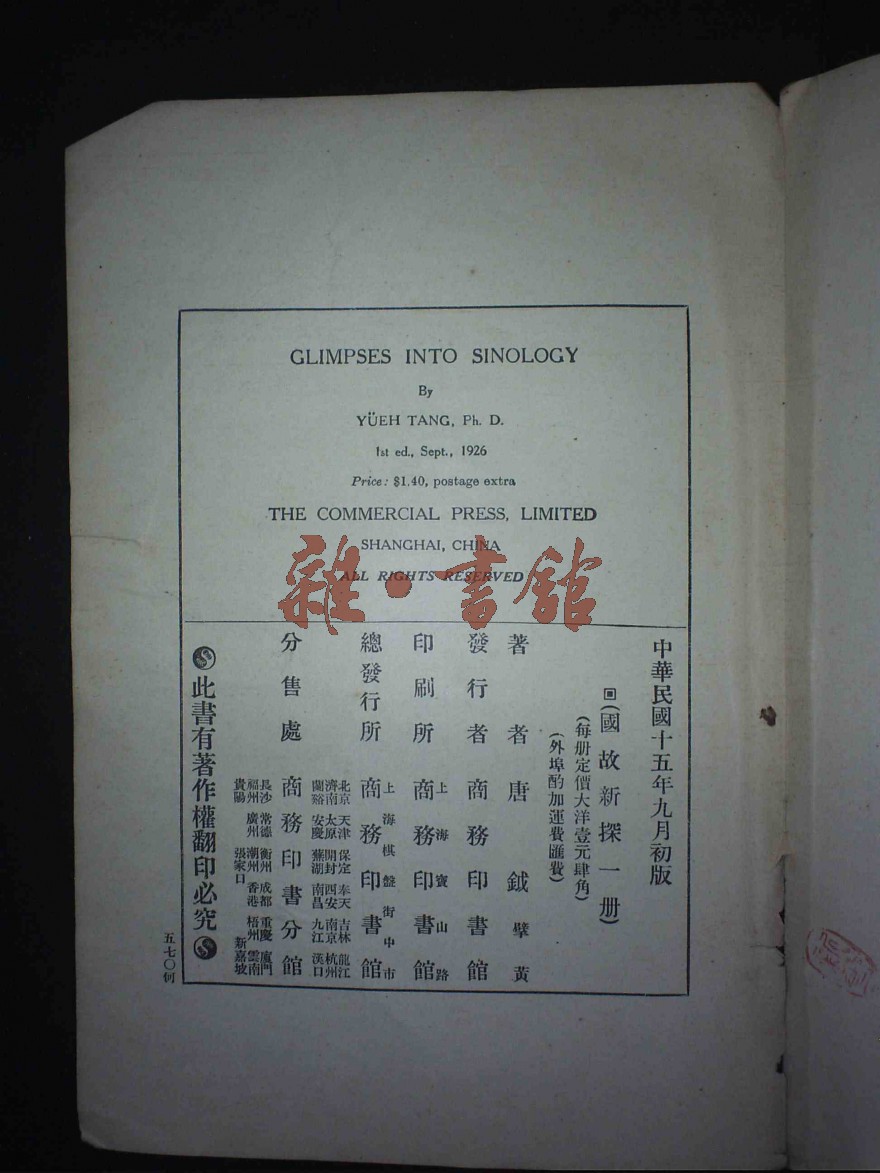 GLIMPSES INTO SINOLOGY
By
YÜEH TANG, Ph. D.
1st ed., Sept., 1926
Price: $1.40, postage extra
THE COMMERCIAL PRESS, LIMITED
SHANGHAI, CHINA
ALL RIGHTS RESERVED
雜·書館
中華民國十五年九月初版
(國故新探一册)
(每册定價大洋壹元肆角)
(外埠酌加運費匯費)
著者 唐鉞 擘黃
發行者 商務印書館
印刷所 上海寶山路 商務印書館
總發行所 上海棋盤街中市 商務印書館
分售處 商務印書分館
北京 天津 保定 奉天 吉林 龍江
濟南 太原 開封 西安 南京 杭州
蘭谿 安慶 蕪湖 南昌 九江 漢口
長沙 常德 衡州 成都 重慶 廈門
福州 廣州 潮州 香港 梧州 雲南
貴陽 張家口 新嘉坡
此書有著作權翻印必究
五七〇何